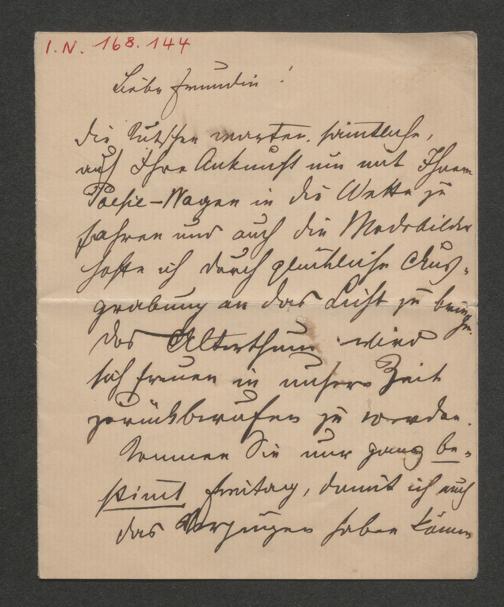 I.N. 168.144
Liebe Freundin!
Die Kutscher warten sämtliche,
auf Ihre Ankunft um mit Ihrem
Poesie-Wagen in die Wette zu
fahren und auch die Modebilder
hoffe ich durch glückliche Aus-
grabung an das Licht zu bringen.
Das Alterthum wird
sich freuen in unsere Zeit
zurückberufen zu werden.
Kommen Sie nur ganz be-
stimt Freitag, damit ich auch
das Vergnügen haben kann